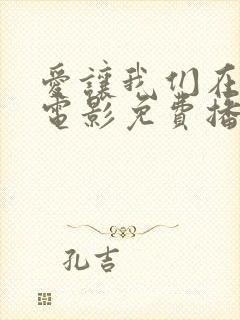 愛讓我们在
電影免費播
孔吉